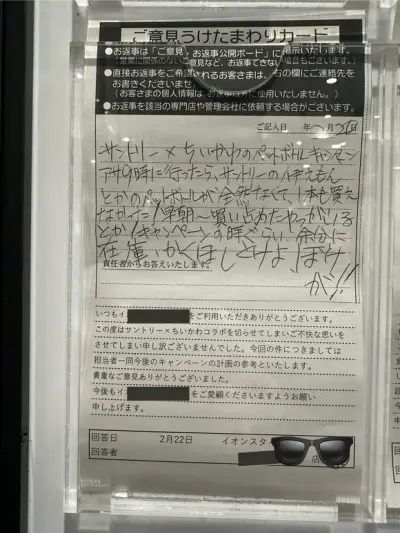 ご意見うけたまわりカード
●お返事は「ご意見・お返事公開ボード」に掲示いたします。
(営業に関係のないご意見など、お返事できない
●直接お返事をご希望されるお客さまは、方の欄にご連絡先を
お書きくださいませ。
(お客さまの個人情報は、お返事以外に使用いたしません。)
●お返事を該当の専門店や管理会社に依頼する場合がございます。
ご記入日 年 月 日
サントリー×ちいかわのペットボトルキャンペーン
朝9時に行ったら、サントリーの伊えもん
とかのペットボトルが全然なくて、1本も買え
なかった!早朝〜買い占めたやつがいる
とか!キャンペーンの時ぐらい、余分に
在庫いかくほしとけよ、ぼけ
が!!
責任者からお答えいたします。
いつもイ をご利用いただきありがとうございます。
この度はサントリー×ちいかわコラボを切らせてしまいご不快な思いを
させてしまい申し訳ございませんでした。今回の件につきましては
担当者一同今後のキャンペーンの計画の参考といたします。
貴重なご意見ありがとうございました。
今後もイ をご愛顧くださいますようお願い
申し上げます。
回答日 2月22日 イオンスタ
回答者 店